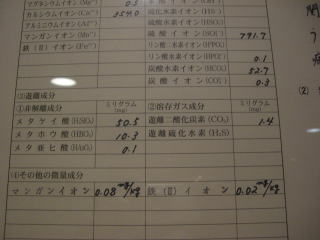 マグネシウムイオン(Mg⁺⁺) 0.5
カルシウムイオン(Ca⁺⁺)
アルミニウムイオン(Al⁺⁺⁺)
マンガンイオン(Mn⁺⁺)
鉄(Ⅱ)イオン(Fe⁺⁺)
硫酸水素イオン(HSO₄⁻)
硫酸イオン(SO₄⁻⁻) 791.7
リン酸二水素イオン
リン酸水素イオン(HPO₄⁻⁻) 0.1
炭酸水素イオン(HCO₃⁻) 52.7
炭酸イオン(CO₃⁻⁻) 0.3
③遊離成分
①非解離成分 ミリグラム(mg)
メタケイ酸(H₂SiO₃) 50.5
メタホウ酸(HBO₂) 10.3
メタ亜ヒ酸(HAsO₂) 0.1
②溶存ガス成分 ミリグラム(mg)
遊離二酸化炭素(CO₂) 1.4
遊離硫化水素(H₂S)
(4)その他の微量成分
マンガンイオン 0.08 mg/kg 鉄(Ⅱ)イオン 0.02 mg/kg
(2)